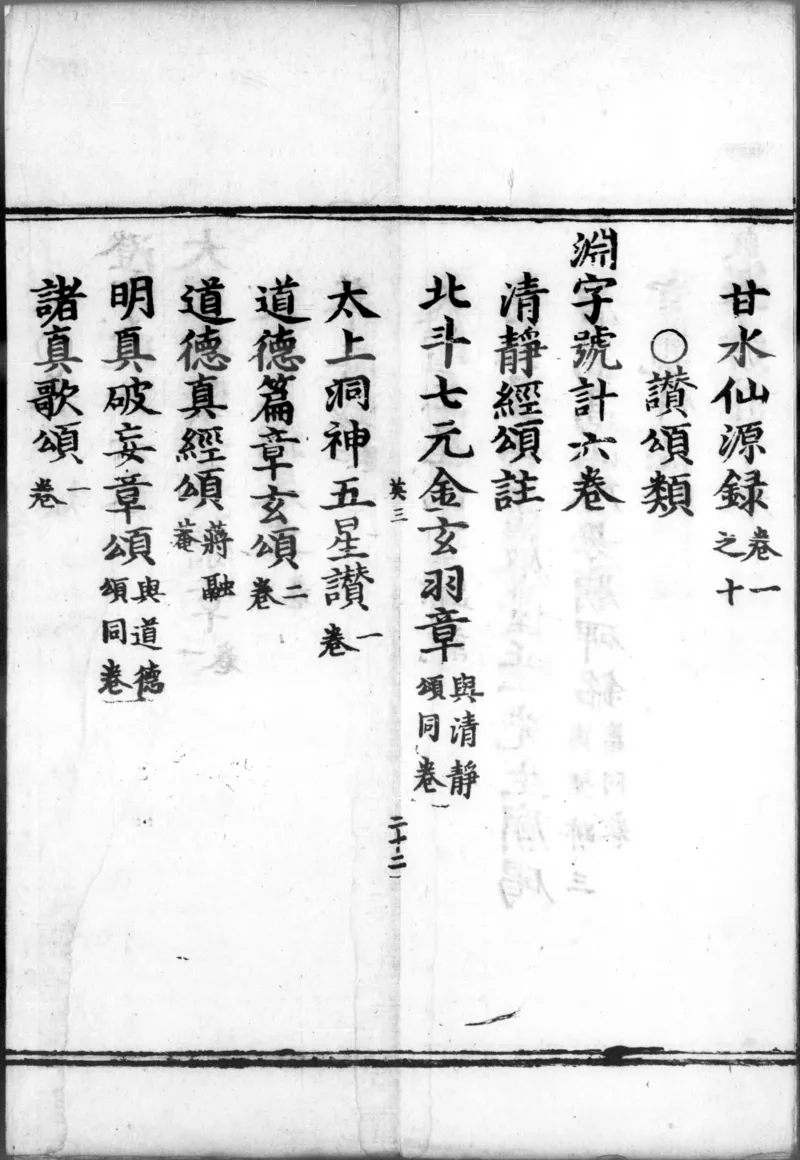 甘水仙源録卷一之十
○讃頌類
淵字號計六卷
清靜經頌註
北斗七元金玄羽章與清靜頌同卷
英三
二十二
太上洞神五星讃一卷
道德篇章玄頌二卷
道德真經頌蔣融菴
明真破妄章頌與道德頌同卷
諸真歌頌一卷